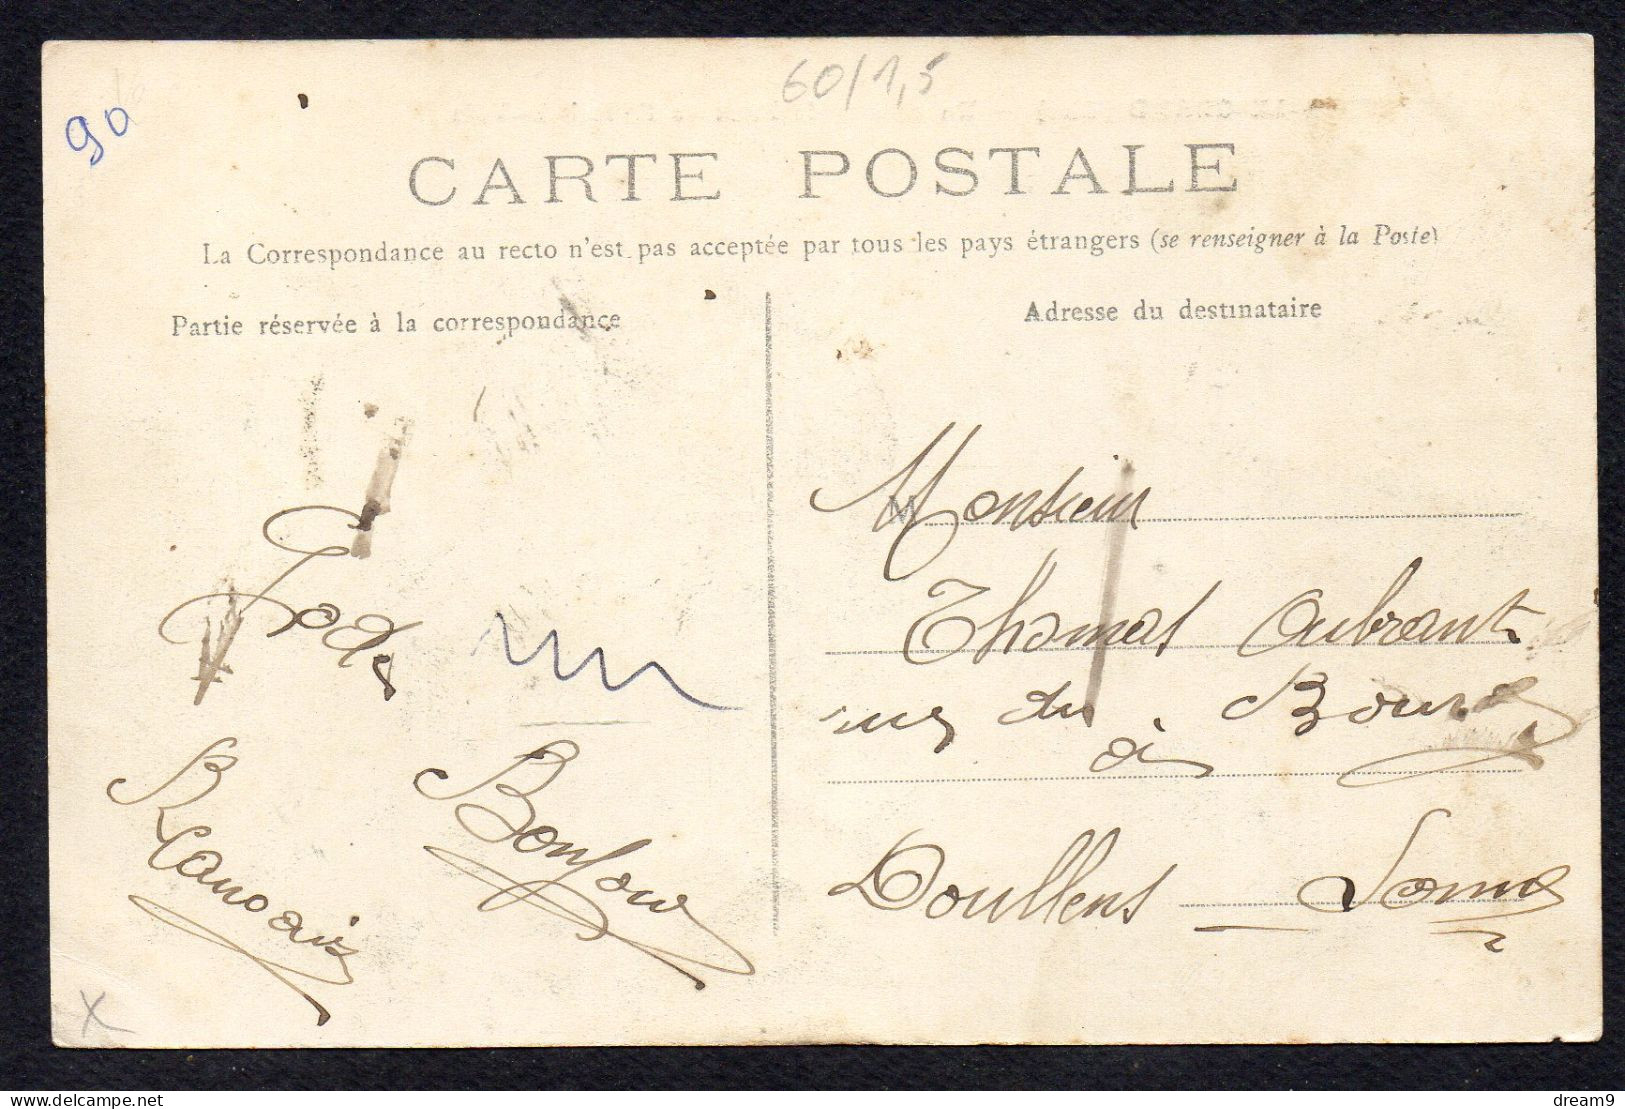 90
60/1,5
CARTE POSTALE
La Correspondance au recto n'est pas acceptée par tous les pays étrangers (se renseigner à la Poste)
Partie réservée à la correspondance
Adresse du destinataire
Bonjour
M Monsieur
Thomas
rue du
à
Doullens Somme
X
delcampe.net
dream9